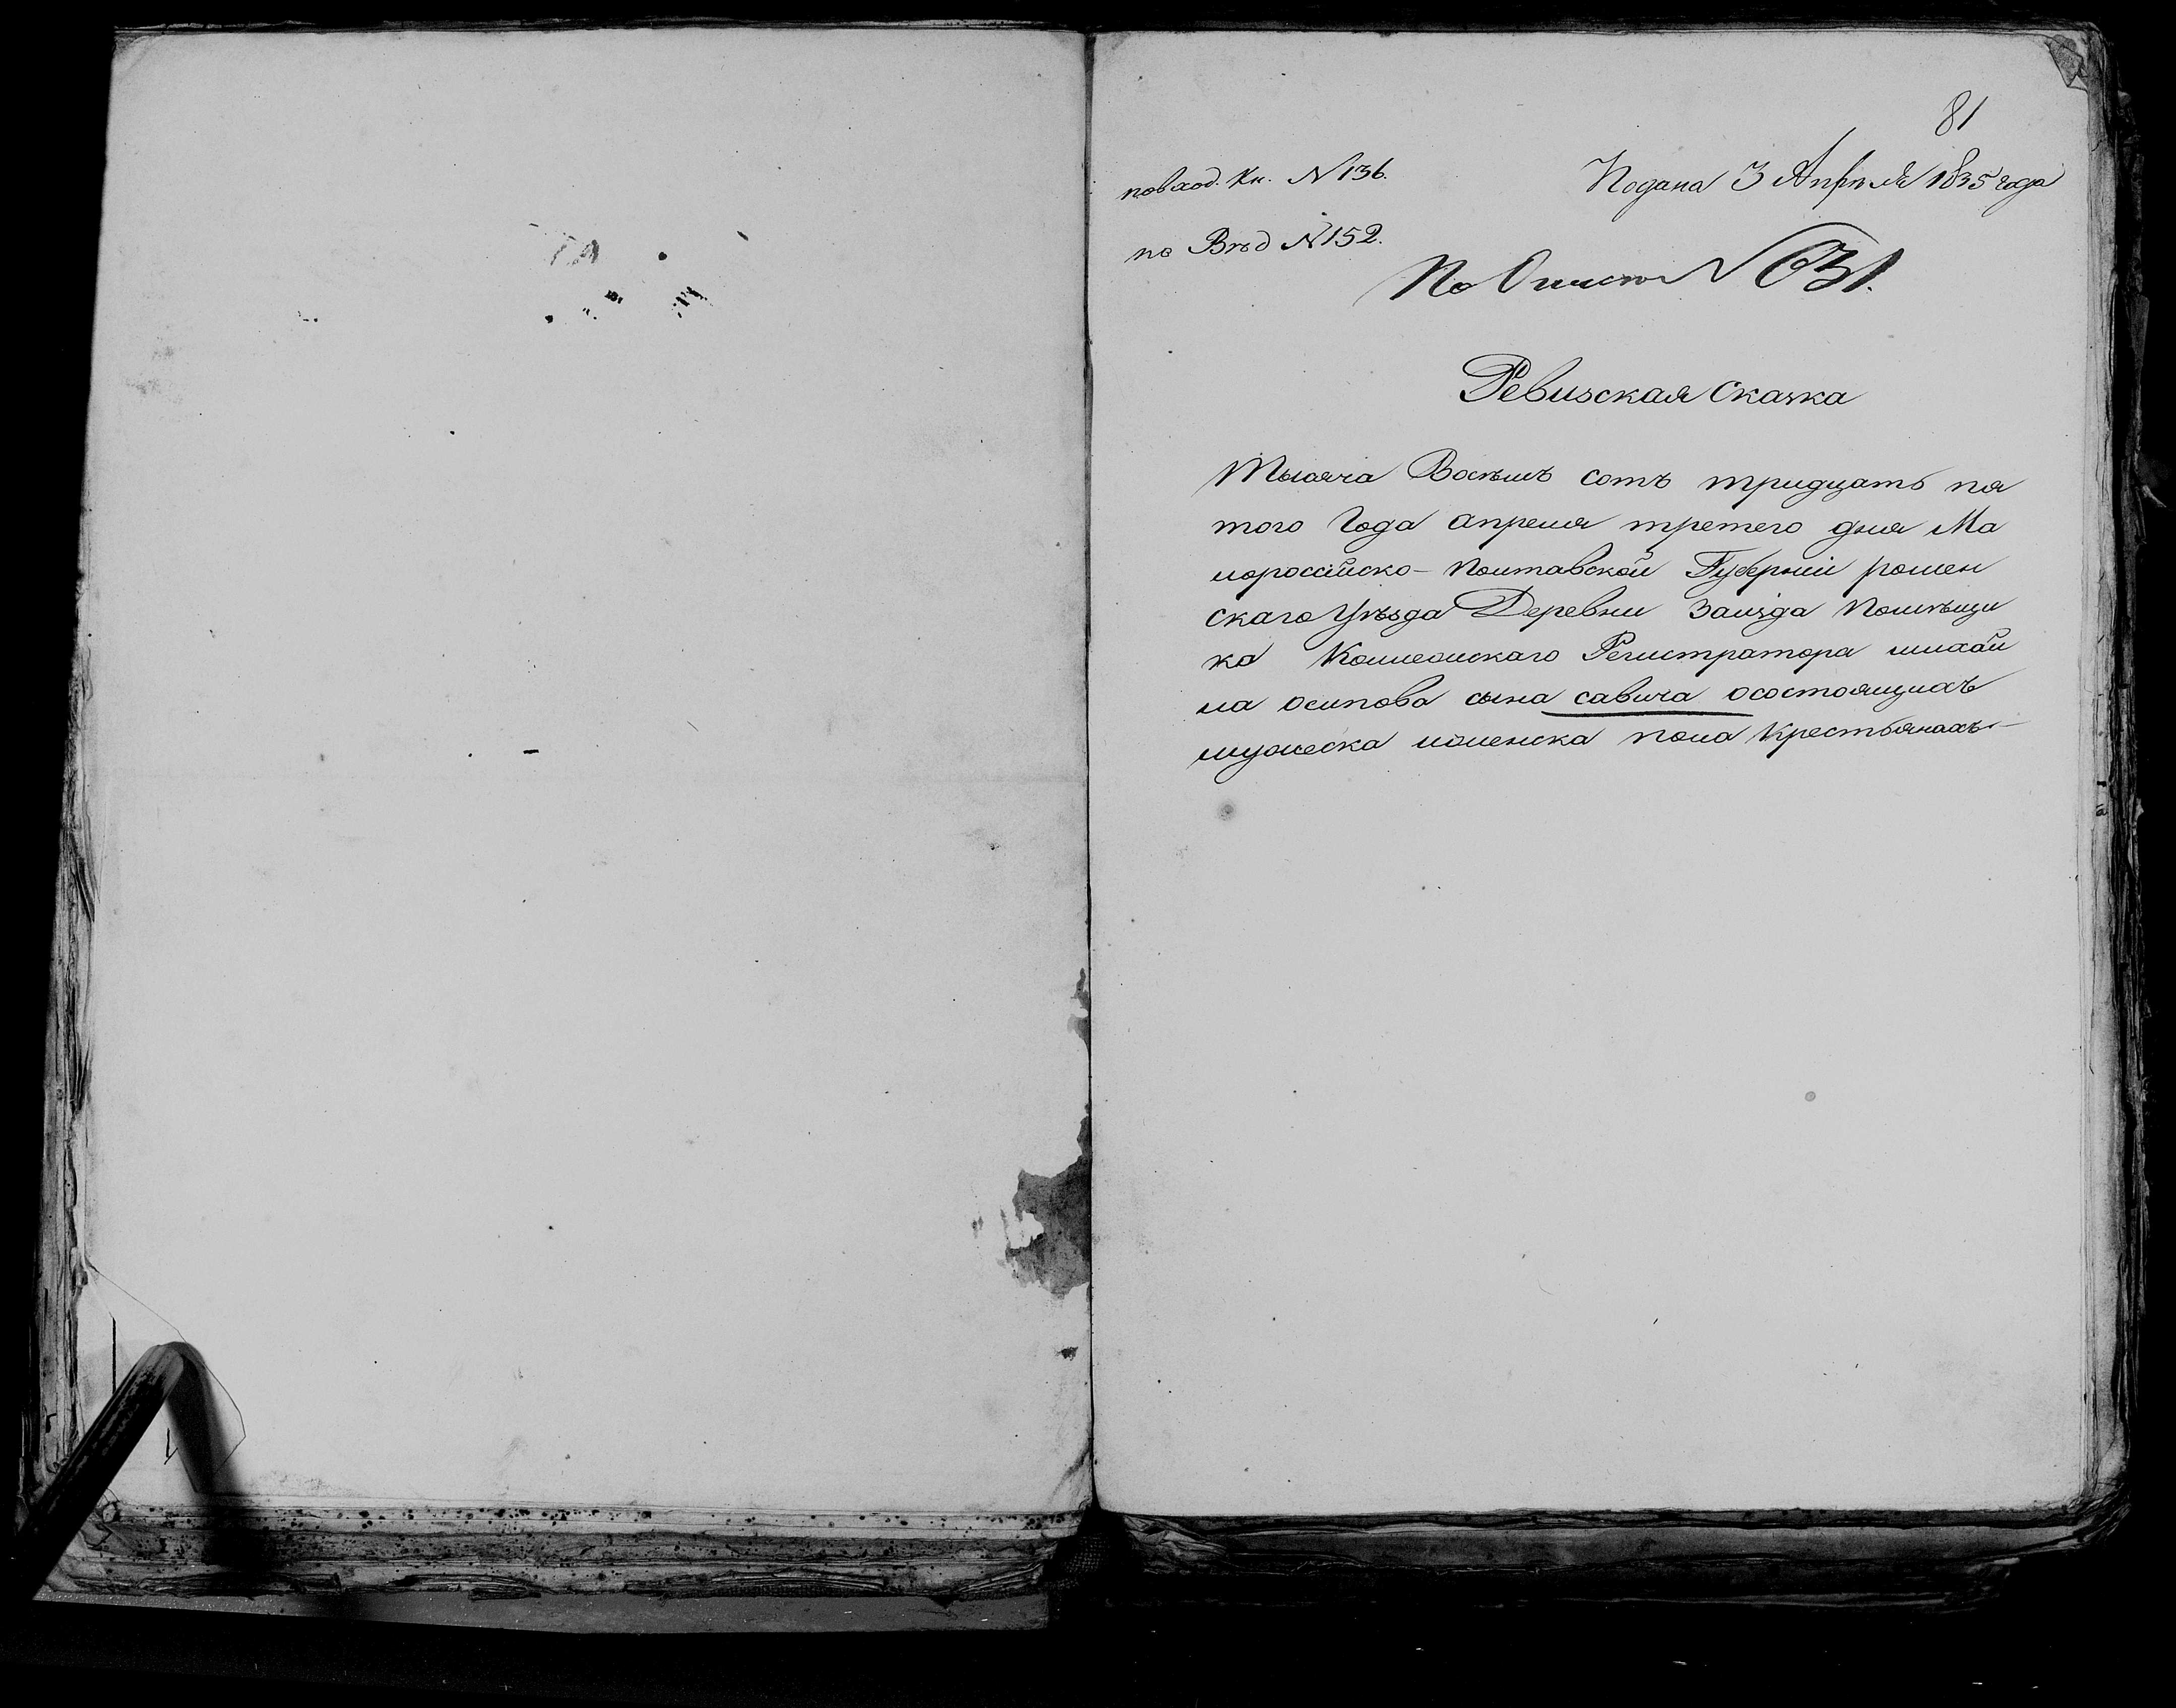 81
повход. Кн. N 136.
Подана 3 Апреля 1835 года
по Вѣд N 152.
По Описи N 631.
Ревизская сказка
Тысяча Восѣмъ сотъ тридцать пя
того Года апреля третего дня Ма
лороссійско-Полтавской Губерніи ромен
скаго Уѣзда Деревни Помѣщи
ка Коллежскаго Регистратора михай
ла осипова сына савича осостоящихъ
мужеска иженска пола Крестьянахъ